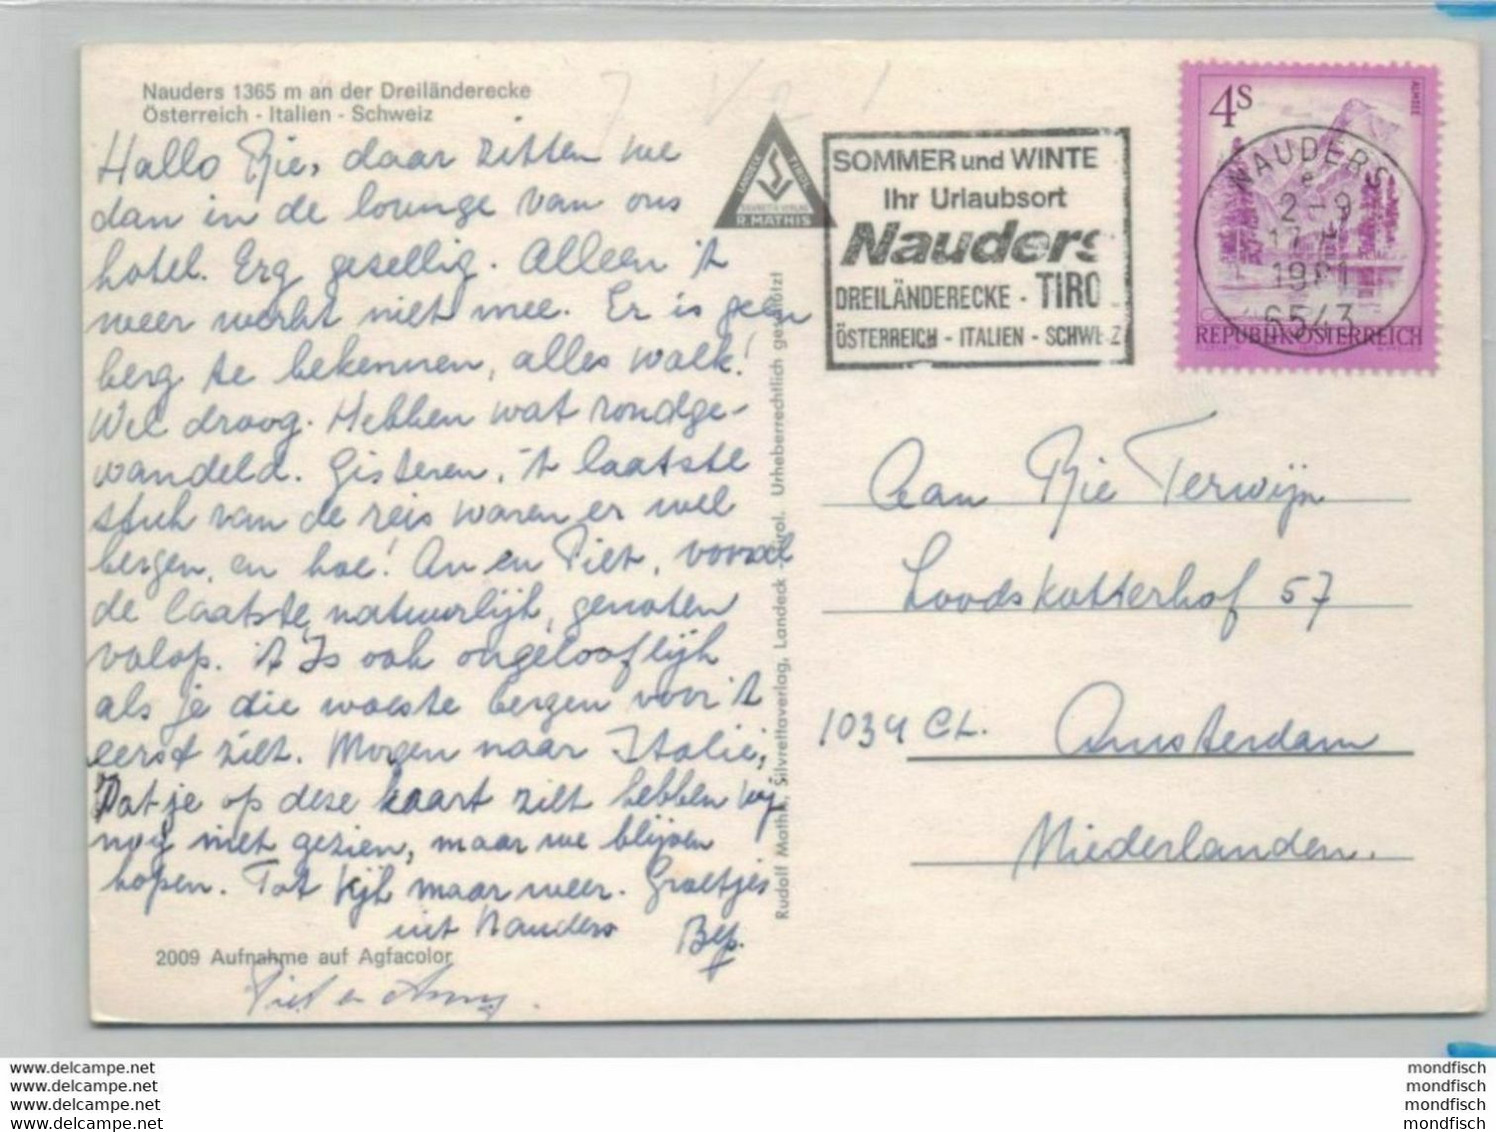 Nauders 1365 m an der Dreiländerecke
Österreich - Italien - Schweiz
Hallo Rie, daar zitten we
dan in de lounge van ons
hotel. Erg gezellig. Alleen 't
weer werkt niet mee. Er is geen
berg te bekennen, alles wolk!
Wel droog. Hebben wat rondge-
wandeld. Gisteren, 't laatste
stuk van de reis waren er wel
bergen, en hoe! An en Piet, vooral
de laatste, natuurlijk, genoten
volop. 't Is ook ongelooflijk
als je die woeste bergen voor 't
eerst ziet. Morgen naar Italië,
Dat je op deze kaart ziet hebben wij
nog niet gezien, maar we blijven
hopen. Tot kijk maar weer. Groetjes
uit Nauders Bep.
2009 Aufnahme auf Agfacolor
Piet en Anny.
LANDECK TIROL
SILVRETTA VERLAG
R. MATHIS
Rudolf Mathis, Silvrettaverlag, Landeck - Tirol. Urheberrechtlich geschützt
SOMMER und WINTE
Ihr Urlaubsort
Nauders
DREILÄNDERECKE - TIRO
ÖSTERREICH - ITALIEN - SCHWEIZ
4S
ALMSEE
REPUBLIK ÖSTERREICH
NAUDERS
e
2-9
17
1981
6543
Aan Rie Terwijn
Loodskotterhof 57
1034 CL. Amsterdam
Niederlanden.
www.delcampe.net
www.delcampe.net
www.delcampe.net
www.delcampe.net
mondfisch
mondfisch
mondfisch
mondfisch